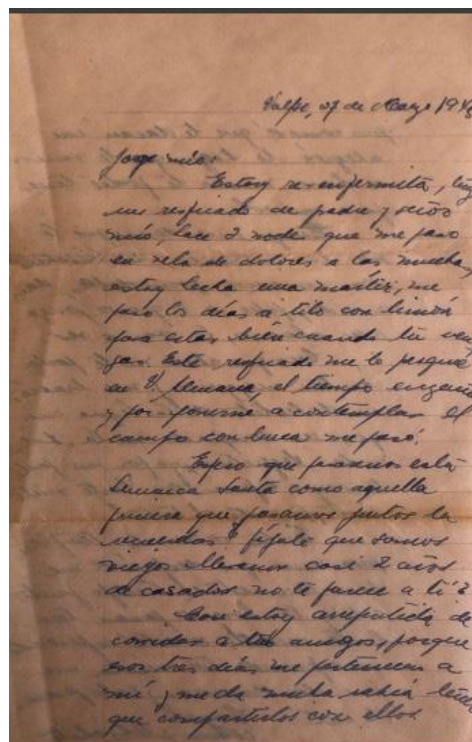 Valpo, 27 de Marzo 194
Jorge mío:
Estoy re enfermita, 
un resfriado de padre y señor
mío, hace 2 noches que me paso
en vela de dolores a las muelas,
estoy hecha una mártir, me
paso los días a tilo con limón
para estar bien cuando tú ven
gas. Este resfriado me lo pesqué
en V. Alemana, el tiempo
y por ponerme a contemplar el
campo con luna me pasó.
Espero que pasemos esta
Semana Santa como aquella
primera que pasamos juntos la
recuerdas? fíjate que somos
viejos llevamos casi 2 años
de casados no te parece a ti?
Casi estoy arrepentida de
convidar a tus amigos, porque
esos tres días me pertenecen a
mí y me da mucha rabia
que compartirlos con ellos.